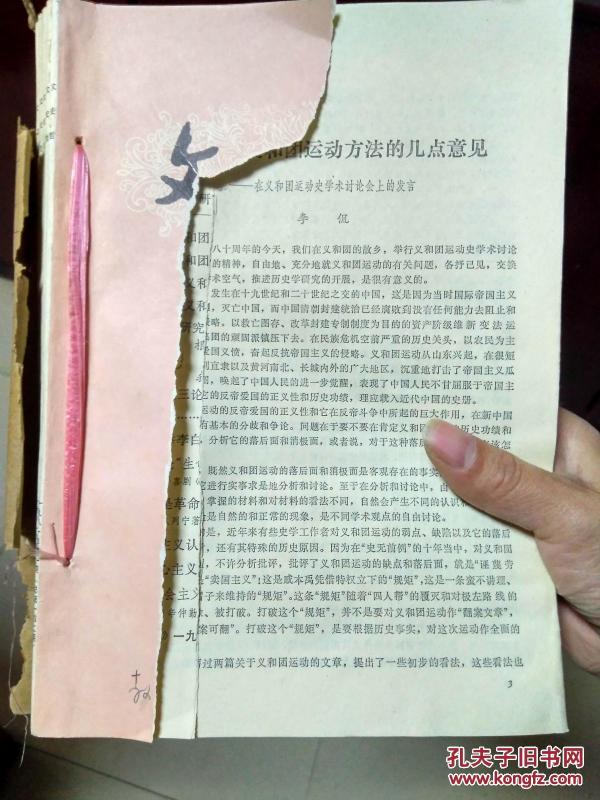 文
和团运动方法的几点意见
——在义和团运动史学术讨论会上的发言
李侃
八十周年的今天，我们在义和团的故乡，举行义和团运动史学术讨论
的精神，自由地、充分地就义和团运动的有关问题，各抒己见，交换
术空气，推进历史学研究的开展，是很有意义的。
发生在十九世纪和二十世纪之交的中国，这是因为当时国际帝国主义
，灭亡中国，而中国清朝封建统治已经腐败到没有任何能力去阻止和
略。以救亡图存、改革封建专制制度为目的的资产阶级维新变法运
集团的顽固派镇压下去。在民族危机空前严重的历史关头，以农民为主
爱国义愤，奋起反抗帝国主义的侵略。义和团运动从山东兴起，在很短
到直隶以及黄河南北、长城内外的广大地区，沉重地打击了帝国主义瓜
，唤起了中国人民的进一步觉醒，表现了中国人民不甘屈服于帝国主
它的反帝爱国的正义性和历史功绩，理应载入近代中国的史册。
运动的反帝爱国的正义性和它在反帝斗争中所起的巨大作用，在新中国
有基本的分歧和争论。问题在于要不要在肯定义和团 历史功绩和
，分析它的落后面和消极面，或者说，对于这种落后 该怎
既然义和团运动的落后面和消极面是客观存在的事实
它进行实事求是地分析和讨论。至于在分析和讨论中，由
掌握的材料和对材料的看法不同，自然会产生不同的认识和
是自然的和正常的现象，是不同学术观点的自由讨论。
的是，近年来有些史学工作者对义和团运动的弱点、缺陷以及它的落后
，还有其特殊的历史原因。因为在“史无前例”的十年当中，对义和团
，不许分析批评，批评了义和团运动的缺点和落后面，就是“诬蔑劳
是“卖国主义”！这是戚本禹凭借特权立下的“规矩”，这是一条蛮不讲理、
子来维持的“规矩”。这条“规矩”随着“四人帮”的覆灭和对极左路线的
、被打破。打破这个“规矩”，并不是要对义和团运动作“翻案文章”，
案可翻”。打破这个“规矩”，是要根据历史事实，对这次运动作全面的
写过两篇关于义和团运动的文章，提出了一些初步的看法，这些看法也
3
研
和团
和团
义和
义和
研究
三论
李白
“生
喜剧
是革命
列宁著
主义认
心主义
会主义
一九
孔夫子旧书网
www.kongfz.com